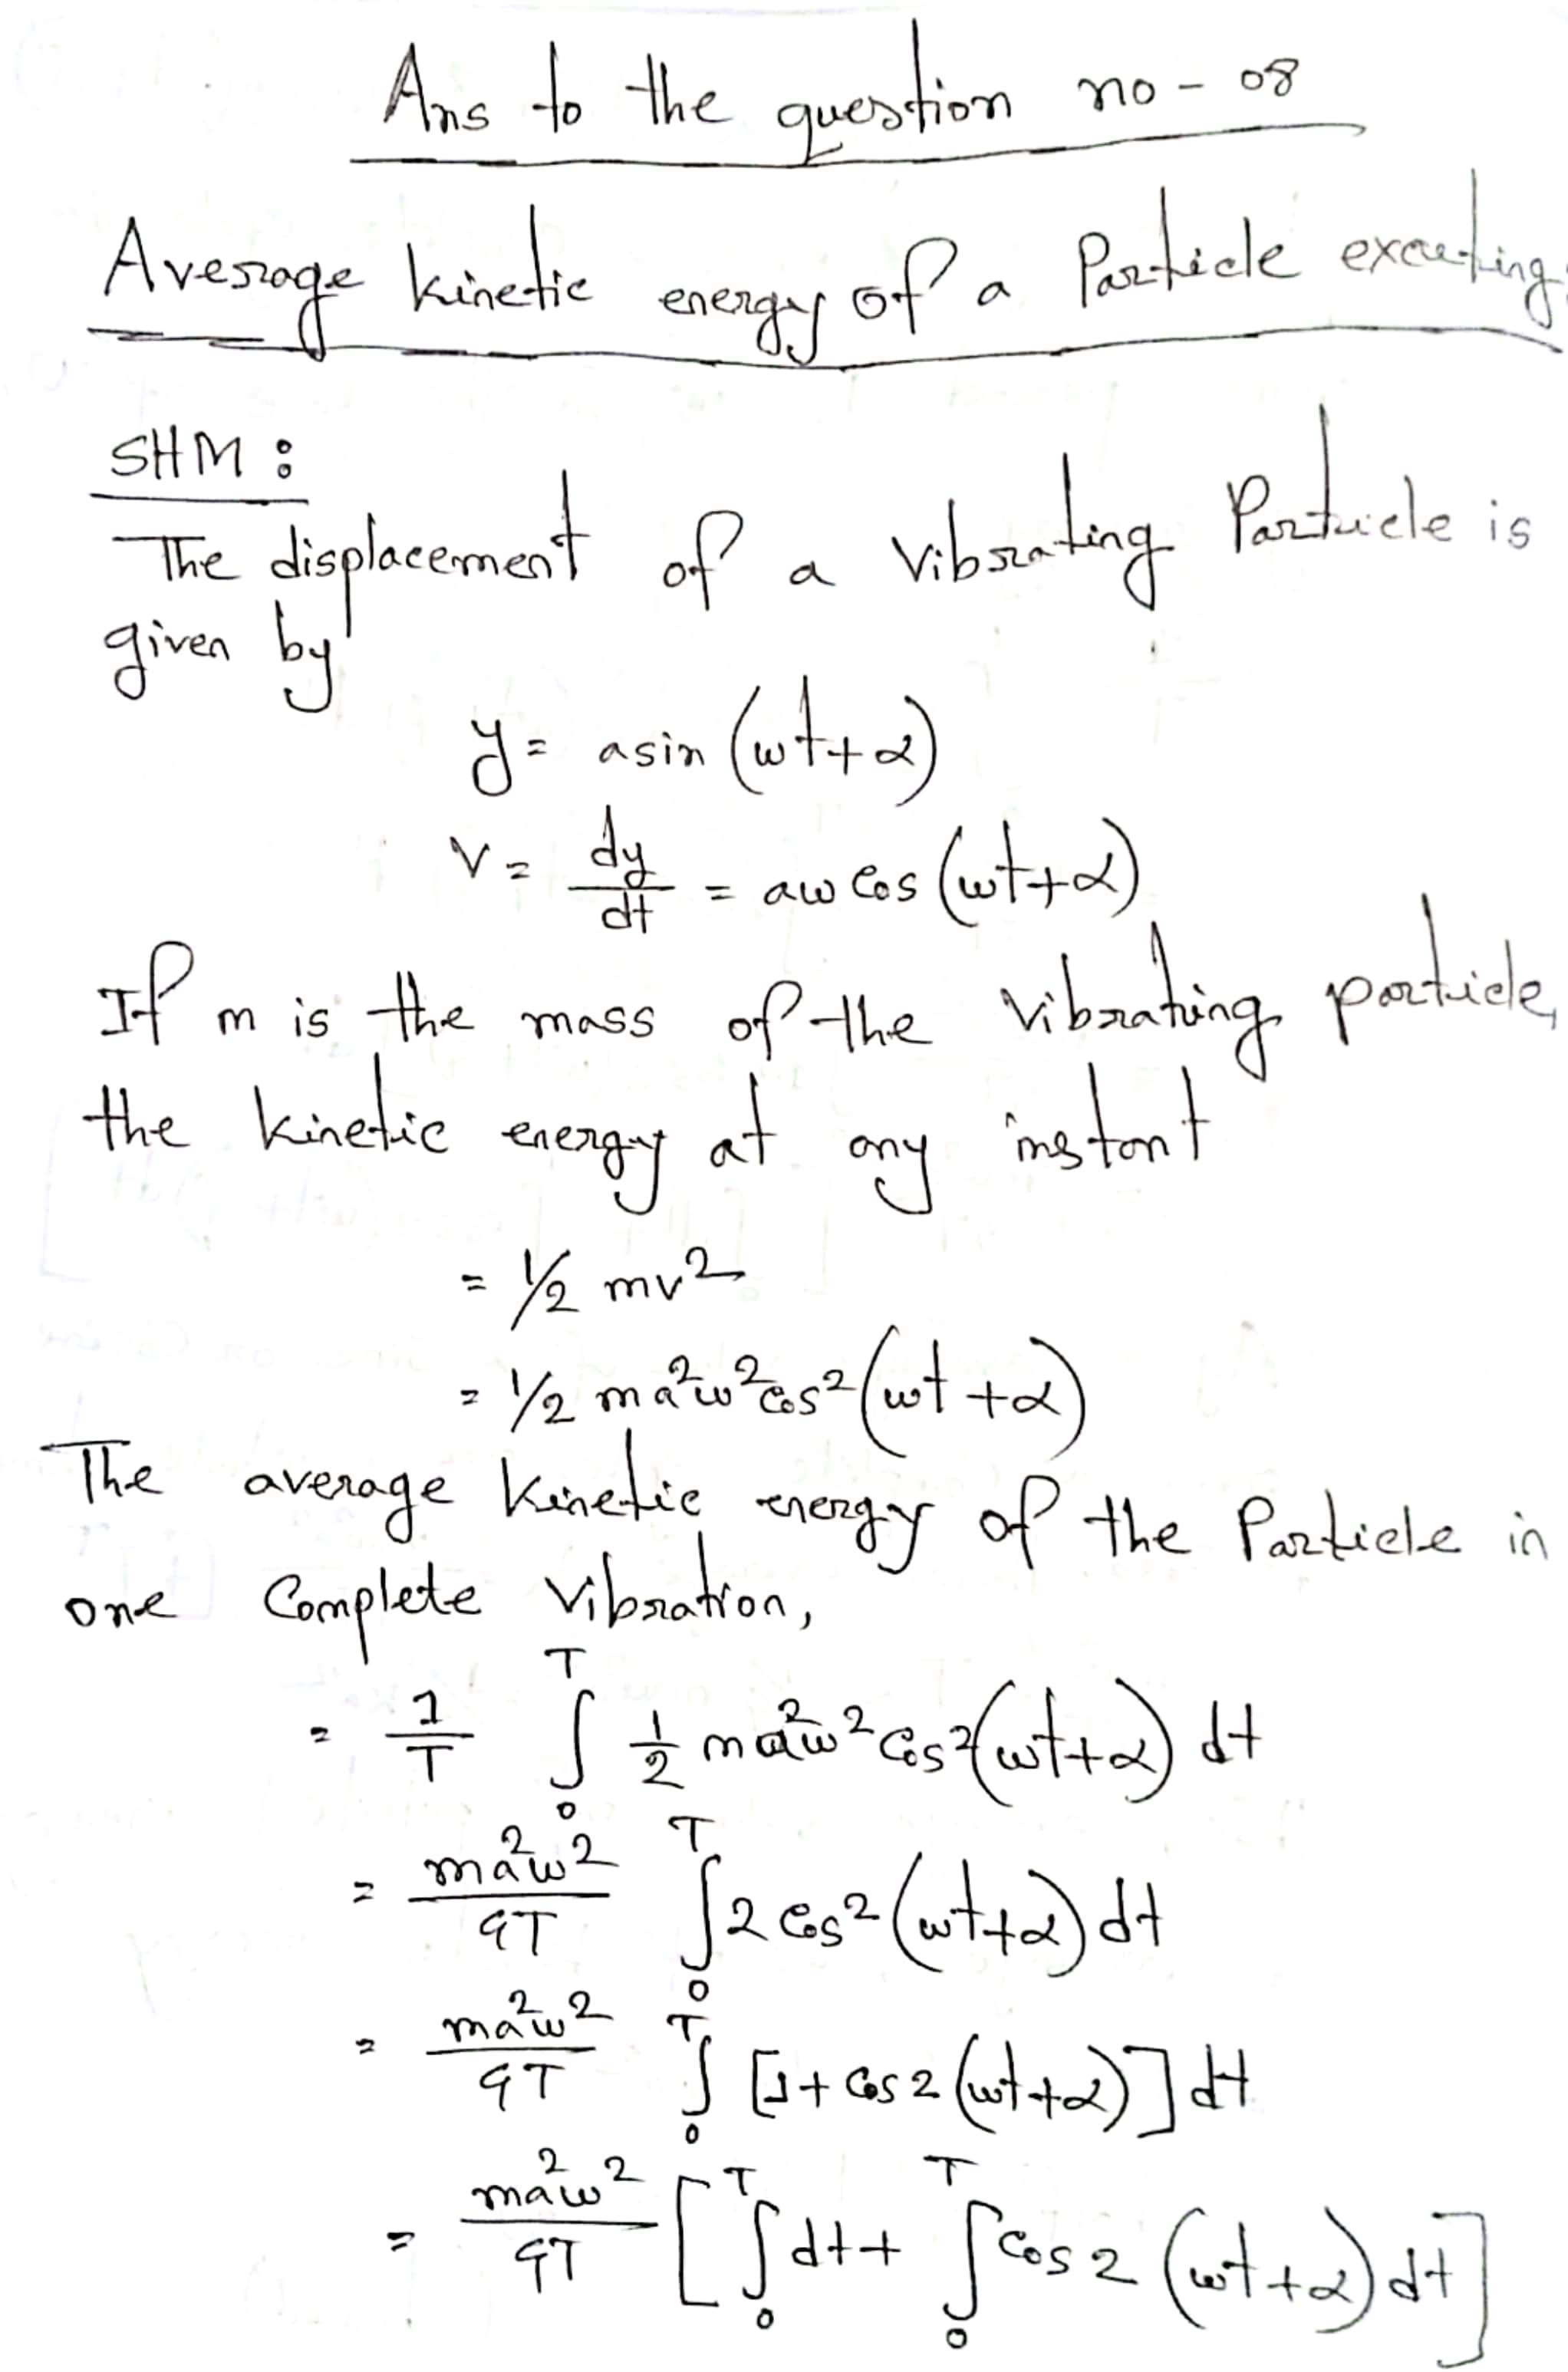 Ans to the question no - 08
Average kinetic energy of a Particle excuting
SHM :
The displacement of a vibrating Particle is
given by
y = a sin (ωt+α)
v = dy/dt = aω cos (ωt+α)
If m is the mass of the vibrating particle,
the kinetic energy at any instant
= 1/2 mv²
= 1/2 ma²ω²cos²(ωt+α)
The average kinetic energy of the Particle in
one Complete vibration,
= 1/T ∫₀ᵀ 1/2 ma²ω² cos²(ωt+α) dt
= ma²ω²/4T ∫₀ᵀ 2 cos² (ωt+α) dt
= ma²ω²/4T ∫₀ᵀ [1+ cos 2 (ωt+α)] dt
= ma²ω²/4T [∫₀ᵀ dt + ∫₀ᵀ cos 2 (ωt+α) dt]